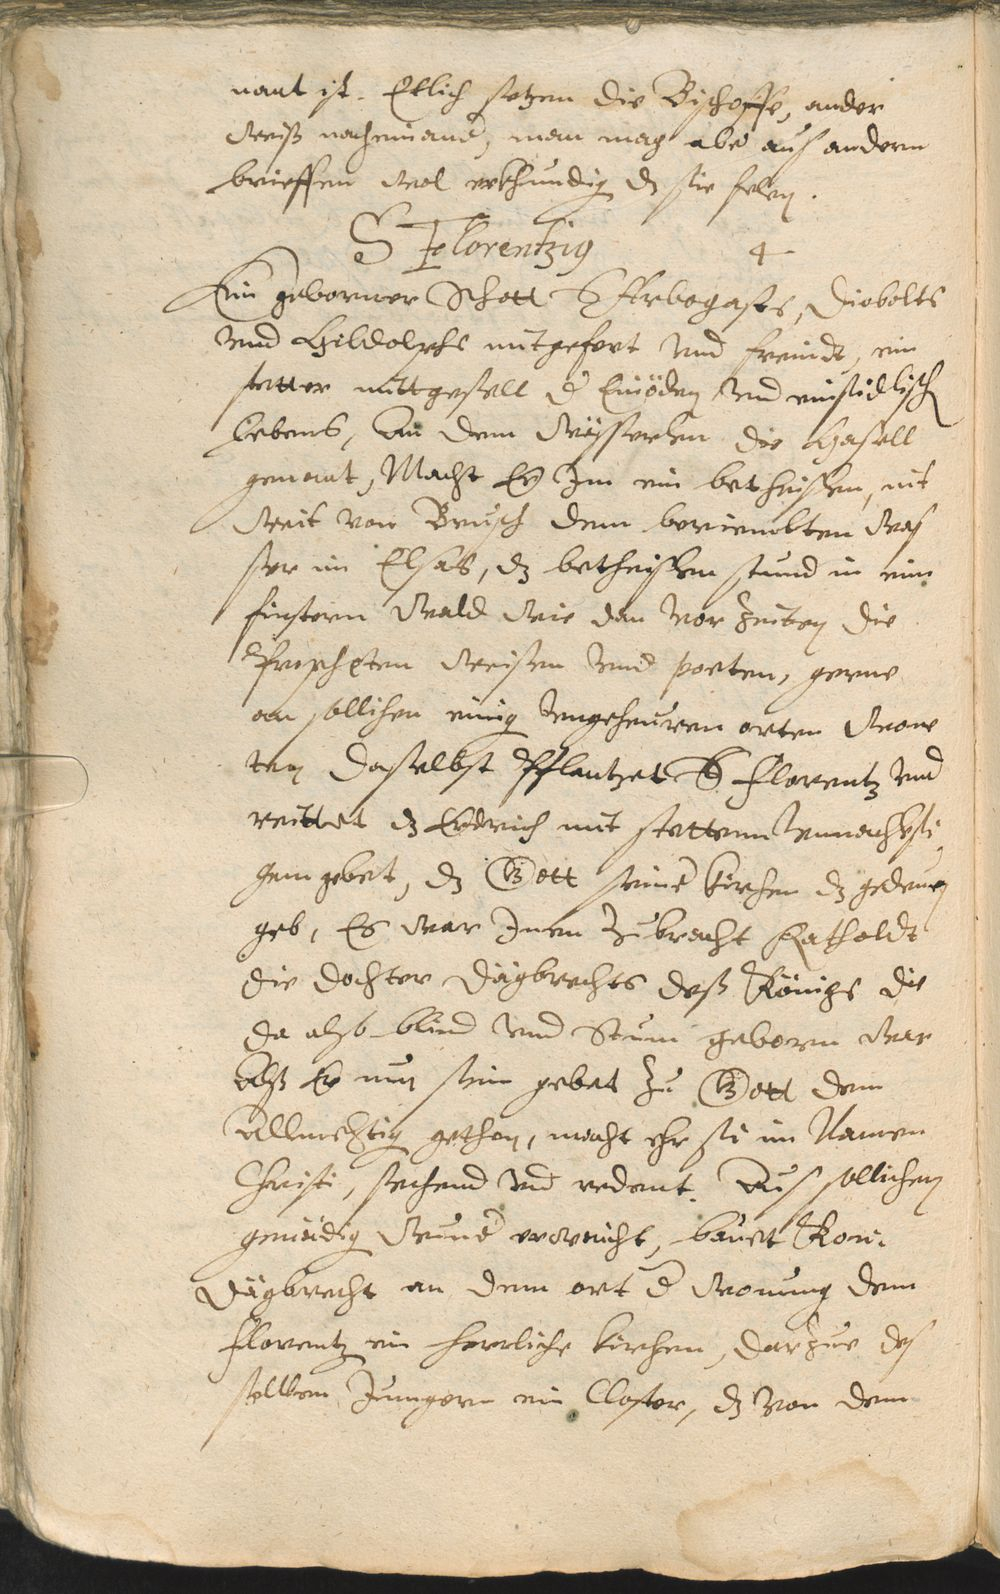 nant ist. Etlich setzen die Bischoffe, ander
Weiß nacheinand, man mag abe auß andern
brieffen Wol erkhundig dz sie felen.
S Florentzig 4
Ein geborner Schott S Arbogasts, Diobolts
Vnd Hildolphs mitgefert Vnd freindt, ein
stetter mittgesell d Einöden Vnd einsidlisch
Lebens, An dem Wässerlen die Hasell
genant, Macht Er Im ein betheißlen, nit
Weit von Brusch dem beriembten Was
ser im Elsas, dz betheißlen stund in eim
finstern Wald Wie dan Vor Zeiten die
Propheten Weisen Vnd poeten, gerne
an sollichen einig Vngeheuren orten Wone
ten Daselbst Pflantzet S Florentz Vnd
reittet dz Erdtrich mit stettem Vnnachlesi
gem gebet, dz Gott seine kirchen dz gedeuen
geb, Es War Inen Zubracht Ratholdt
die dochter Dägbrechts deß Königs die
da also blind Vnd Stum geboren War
Alß Er nun sein gebet Zu Gott dem
Allmechtig gethon, macht ehr sie im Namen
Christi, sechend Vnd redent. Aus sollichen
genädig Wund erweicht, bauet Köni:
Dägbrecht an dem ort d Wonung dem
Florentz ein herrliche kirchen, darzue des
selben Jungern ein Closter, dz Von dem